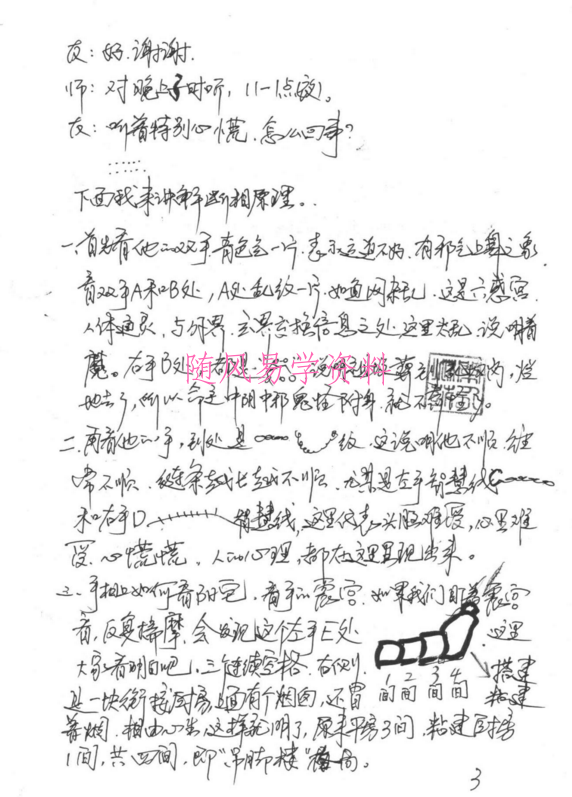 友：好.谢谢.
师：对晚上子时听，11-1点效）。
友：听着特别心慌.怎么回事？
……
下面我来讲解断相原理。
一、首先看他的双手.青色全一片.表示运逆不好.有邪气上身之象
看双手A和B处，A处乱纹一片.如鱼网杂乱.这是六感宫.
人体通灵，与外界.交换信息之处.这里太乱，说明着
魔。右手B处
随风易学资料
地去了，所以命运中阴中邪鬼怪附身.就不
二、再看他的手，到处是 纹.这说明他不顺.经
常不顺.链条越长越不顺.尤其是左手智慧线
和右手D 智慧线，这里代表头脑难受，心里难
受.心慌慌.人的心理，都在这里显现出来。
三、手相上如何看阳宅.看手的震宫.如果我们盯着震宫
看，反复揣摩.会发现这个左手E处 这里
大家看明白吧.三个连续空格.右侧
是一块衔接厨房.上面有个烟囱，还冒
1间 2间 3间 4间
搭建
粘建
着烟.相由心生.这样就明了，原来平房3间，粘建厨房
1间，共四间，即“吊脚楼”格局。
3